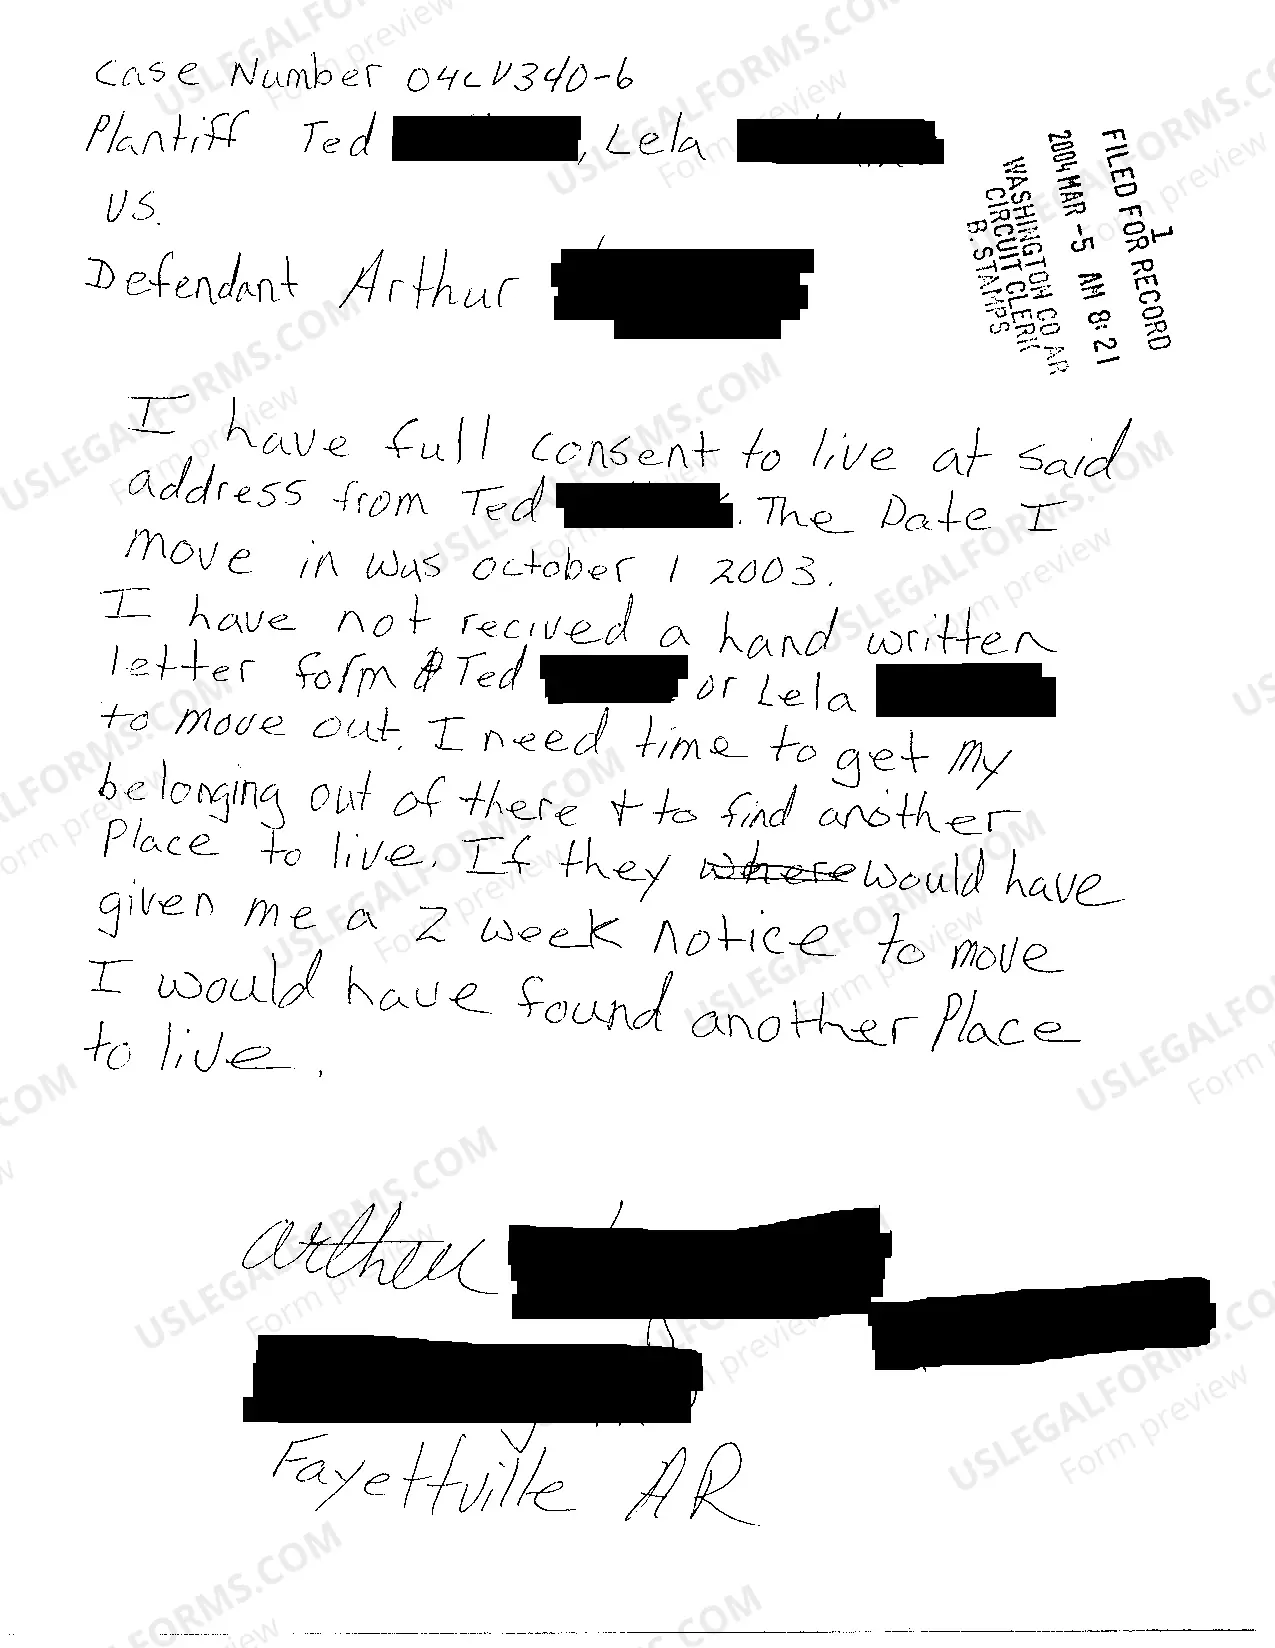 Case Number 04CV340-6
Plantiff Ted , Lela
VS.
Defendant Arthur
FILED FOR RECORD
2004 MAR -5 AM 8:21
WASHINGTON CO AR
CIRCUIT CLERK
B. STAMPS
I have full consent to live at said
address from Ted . The Date I
move in was october 1 2003.
I have not recived a hand written
letter form Ted or Lela
to move out. I need time to get my
belonging out of there + to find another
Place to live. If they where would have
given me a 2 week notice to move
I would have found another Place
to live.
Arthur
Fayettville AR
USLEGALFORMS.COM
Form preview